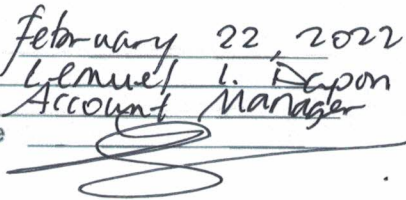 February 22, 2022
Lemuel I. Dapon
Account Manager
e